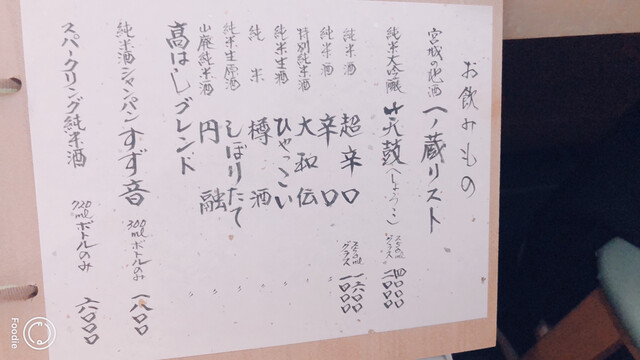 お飲みもの
宮城の地酒 一ノ蔵リスト
純米大吟醸 笙鼓(しょうこ)
純米酒 超辛口
純米酒 辛口
特別純米酒 大和伝
純米生酒 ひゃっこい
純米 樽酒
純米生原酒 しぼりたて
山廃純米酒 円融
高はしブレンド
純米酒シャンパン すず音 300mlボトルのみ 一八〇〇
スパークリング純米酒 720mlボトルのみ 六〇〇〇
Foodie